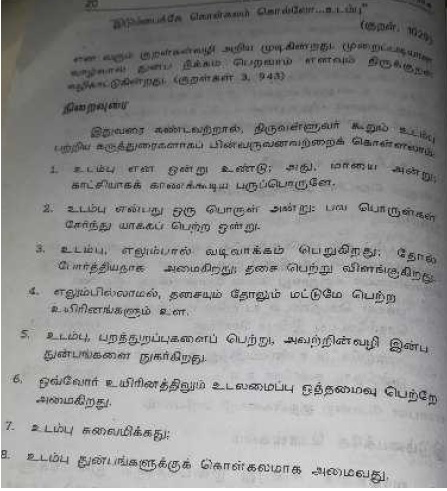 20
"இடும்பைக்கே கொள்கலம் கொல்லோ...உடம்பு"
(குறள், 1029)
என வரும் குறள்கள்வழி அறிய முடிகின்றது. முறைப்படியான
வாழ்வால் துன்ப நீக்கம் பெறலாம் எனவும் திருக்குறள்
(குறள்கள் 3, 943)
நிறைவுரை
இதுவரை கண்டவற்றால், திருவள்ளுவர் கூறும் உடம்பு
பற்றிய கருத்துரைகளாகப் பின்வருவனவற்றைக் கொள்ளலாம்.
1. உடம்பு என ஒன்று உண்டு; அது, மாயை அன்று;
காட்சியாகக் காணக்கூடிய பருப்பொருளே.
2. உடம்பு என்பது ஒரு பொருள் அன்று; பல பொருள்கள்
சேர்ந்து யாக்கப் பெற்ற ஒன்று.
3. உடம்பு, எலும்பால் வடிவாக்கம் பெறுகிறது; தோல்
போர்த்தியதாக அமைகிறது; தசை பெற்று விளங்குகிறது.
4. எலும்பில்லாமல், தசையும் தோலும் மட்டுமே பெற்ற
உயிரினங்களும் உள.
5. உடம்பு, புறத்துறுப்புகளைப் பெற்று, அவற்றின்வழி இன்ப
துன்பங்களை நுகர்கிறது.
6. ஒவ்வோர் உயிரினத்திலும் உடலமைப்பு ஒத்தமைவு பெற்றே
அமைகிறது.
7. உடம்பு சுவைமிக்கது;
8. உடம்பு துன்பங்களுக்குக் கொள்கலமாக அமைவது.